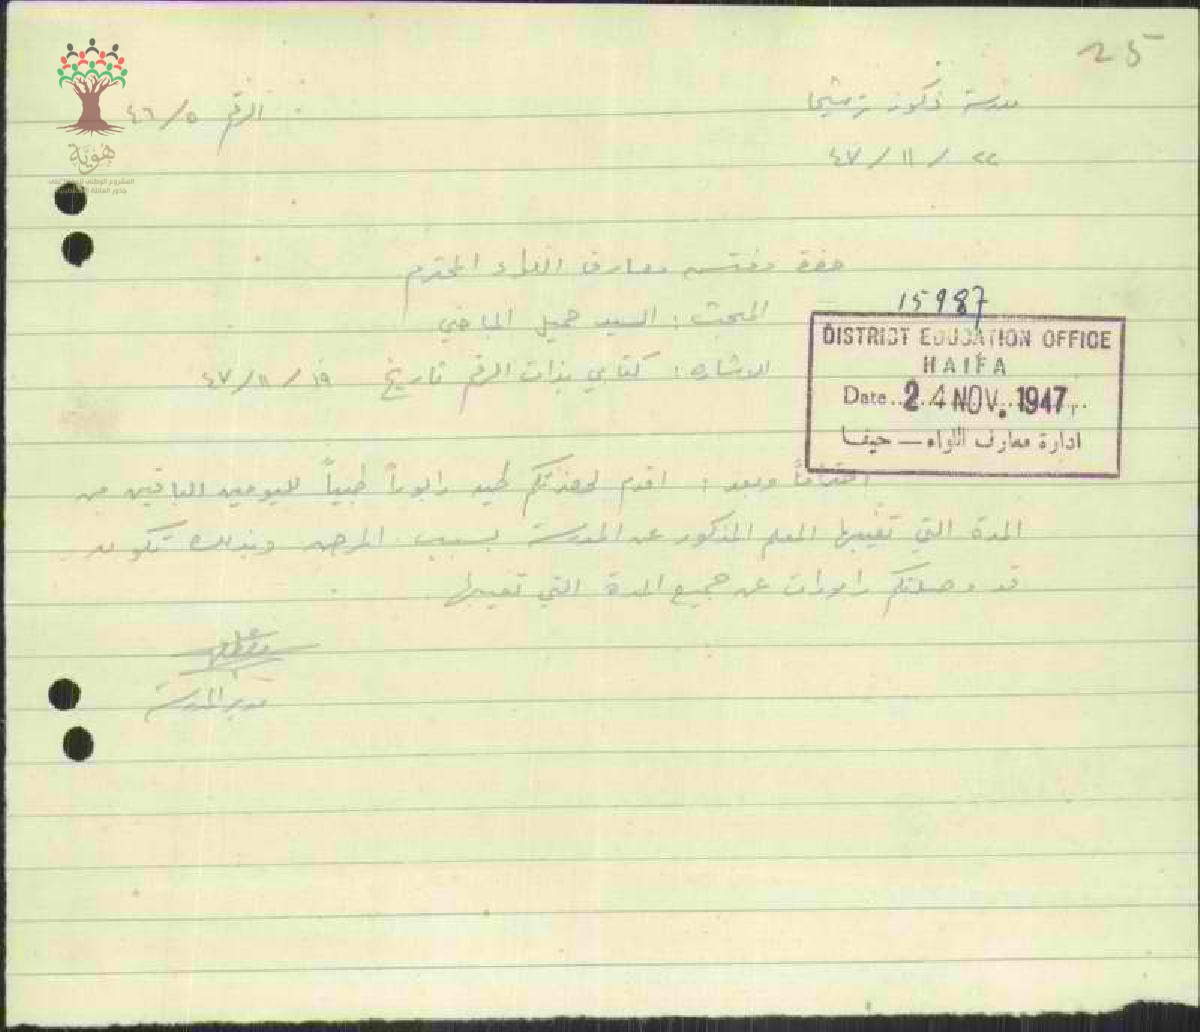 25
مدرسة ذكور ترشيحا
الرقم ٤٦/٥
٢٢ / ١١ / ٤٧
هوية
المشروع الوطني للحفاظ على
جذور العائلة
حضرة مفتش معارف اللواء المحترم
15987
المبحث : السيد جميل
DISTRICT EDUCATION OFFICE
HAIFA
الاشارة : كتابي بذات الرقم تاريخ ١٩ / ١١ / ٤٧
Date 24 NOV. 1947
ادارة معارف اللواء — حيفا
احتراماً وبعد : اقدم لحضرتكم طيه رابوراً طبياً لليومين الباقين من
المدة التي تغيبها المعلم المذكور عن المدرسة بسبب المرض وبذلك تكون
قد وصلتكم رابورات عن جميع المدة التي تغيبها .
مدير المدرسة